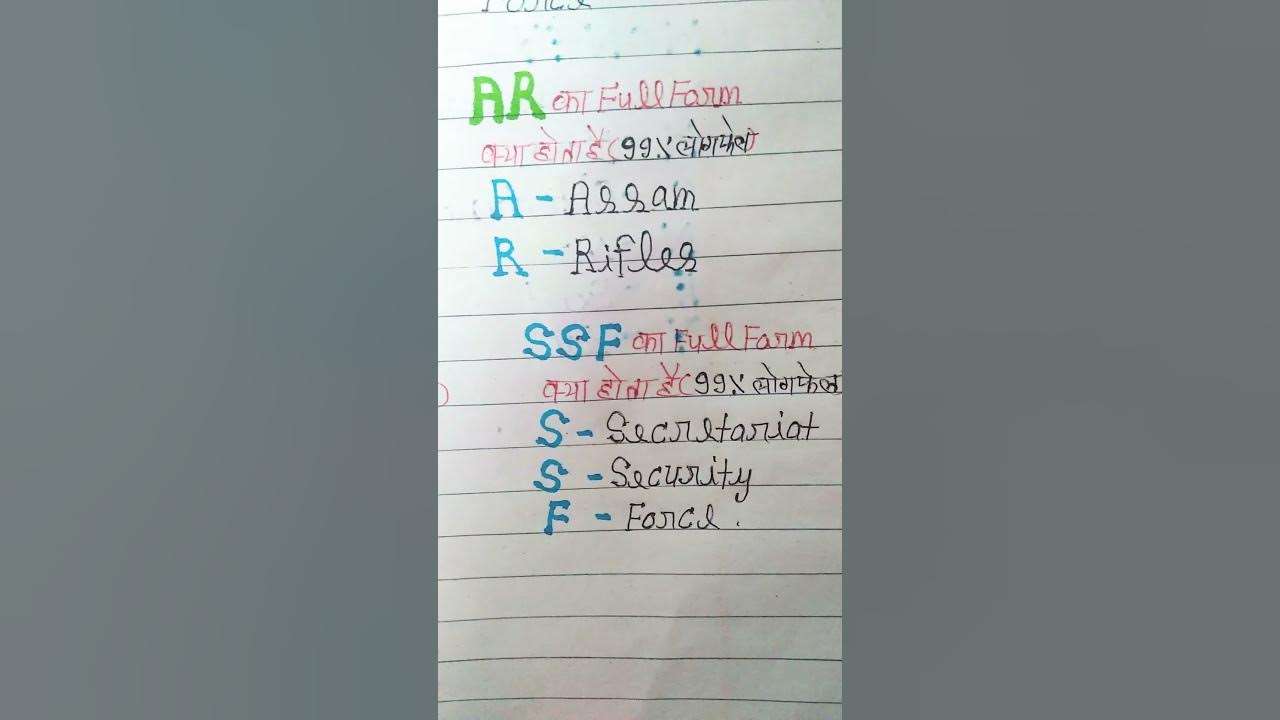 AR का Full Farm
क्या होता है (99% लोग फेल)
A - Assam
R - Rifles
SSF का Full Farm
क्या होता है (99% लोग फेल
S - Secretariat
S - Security
F - Force .